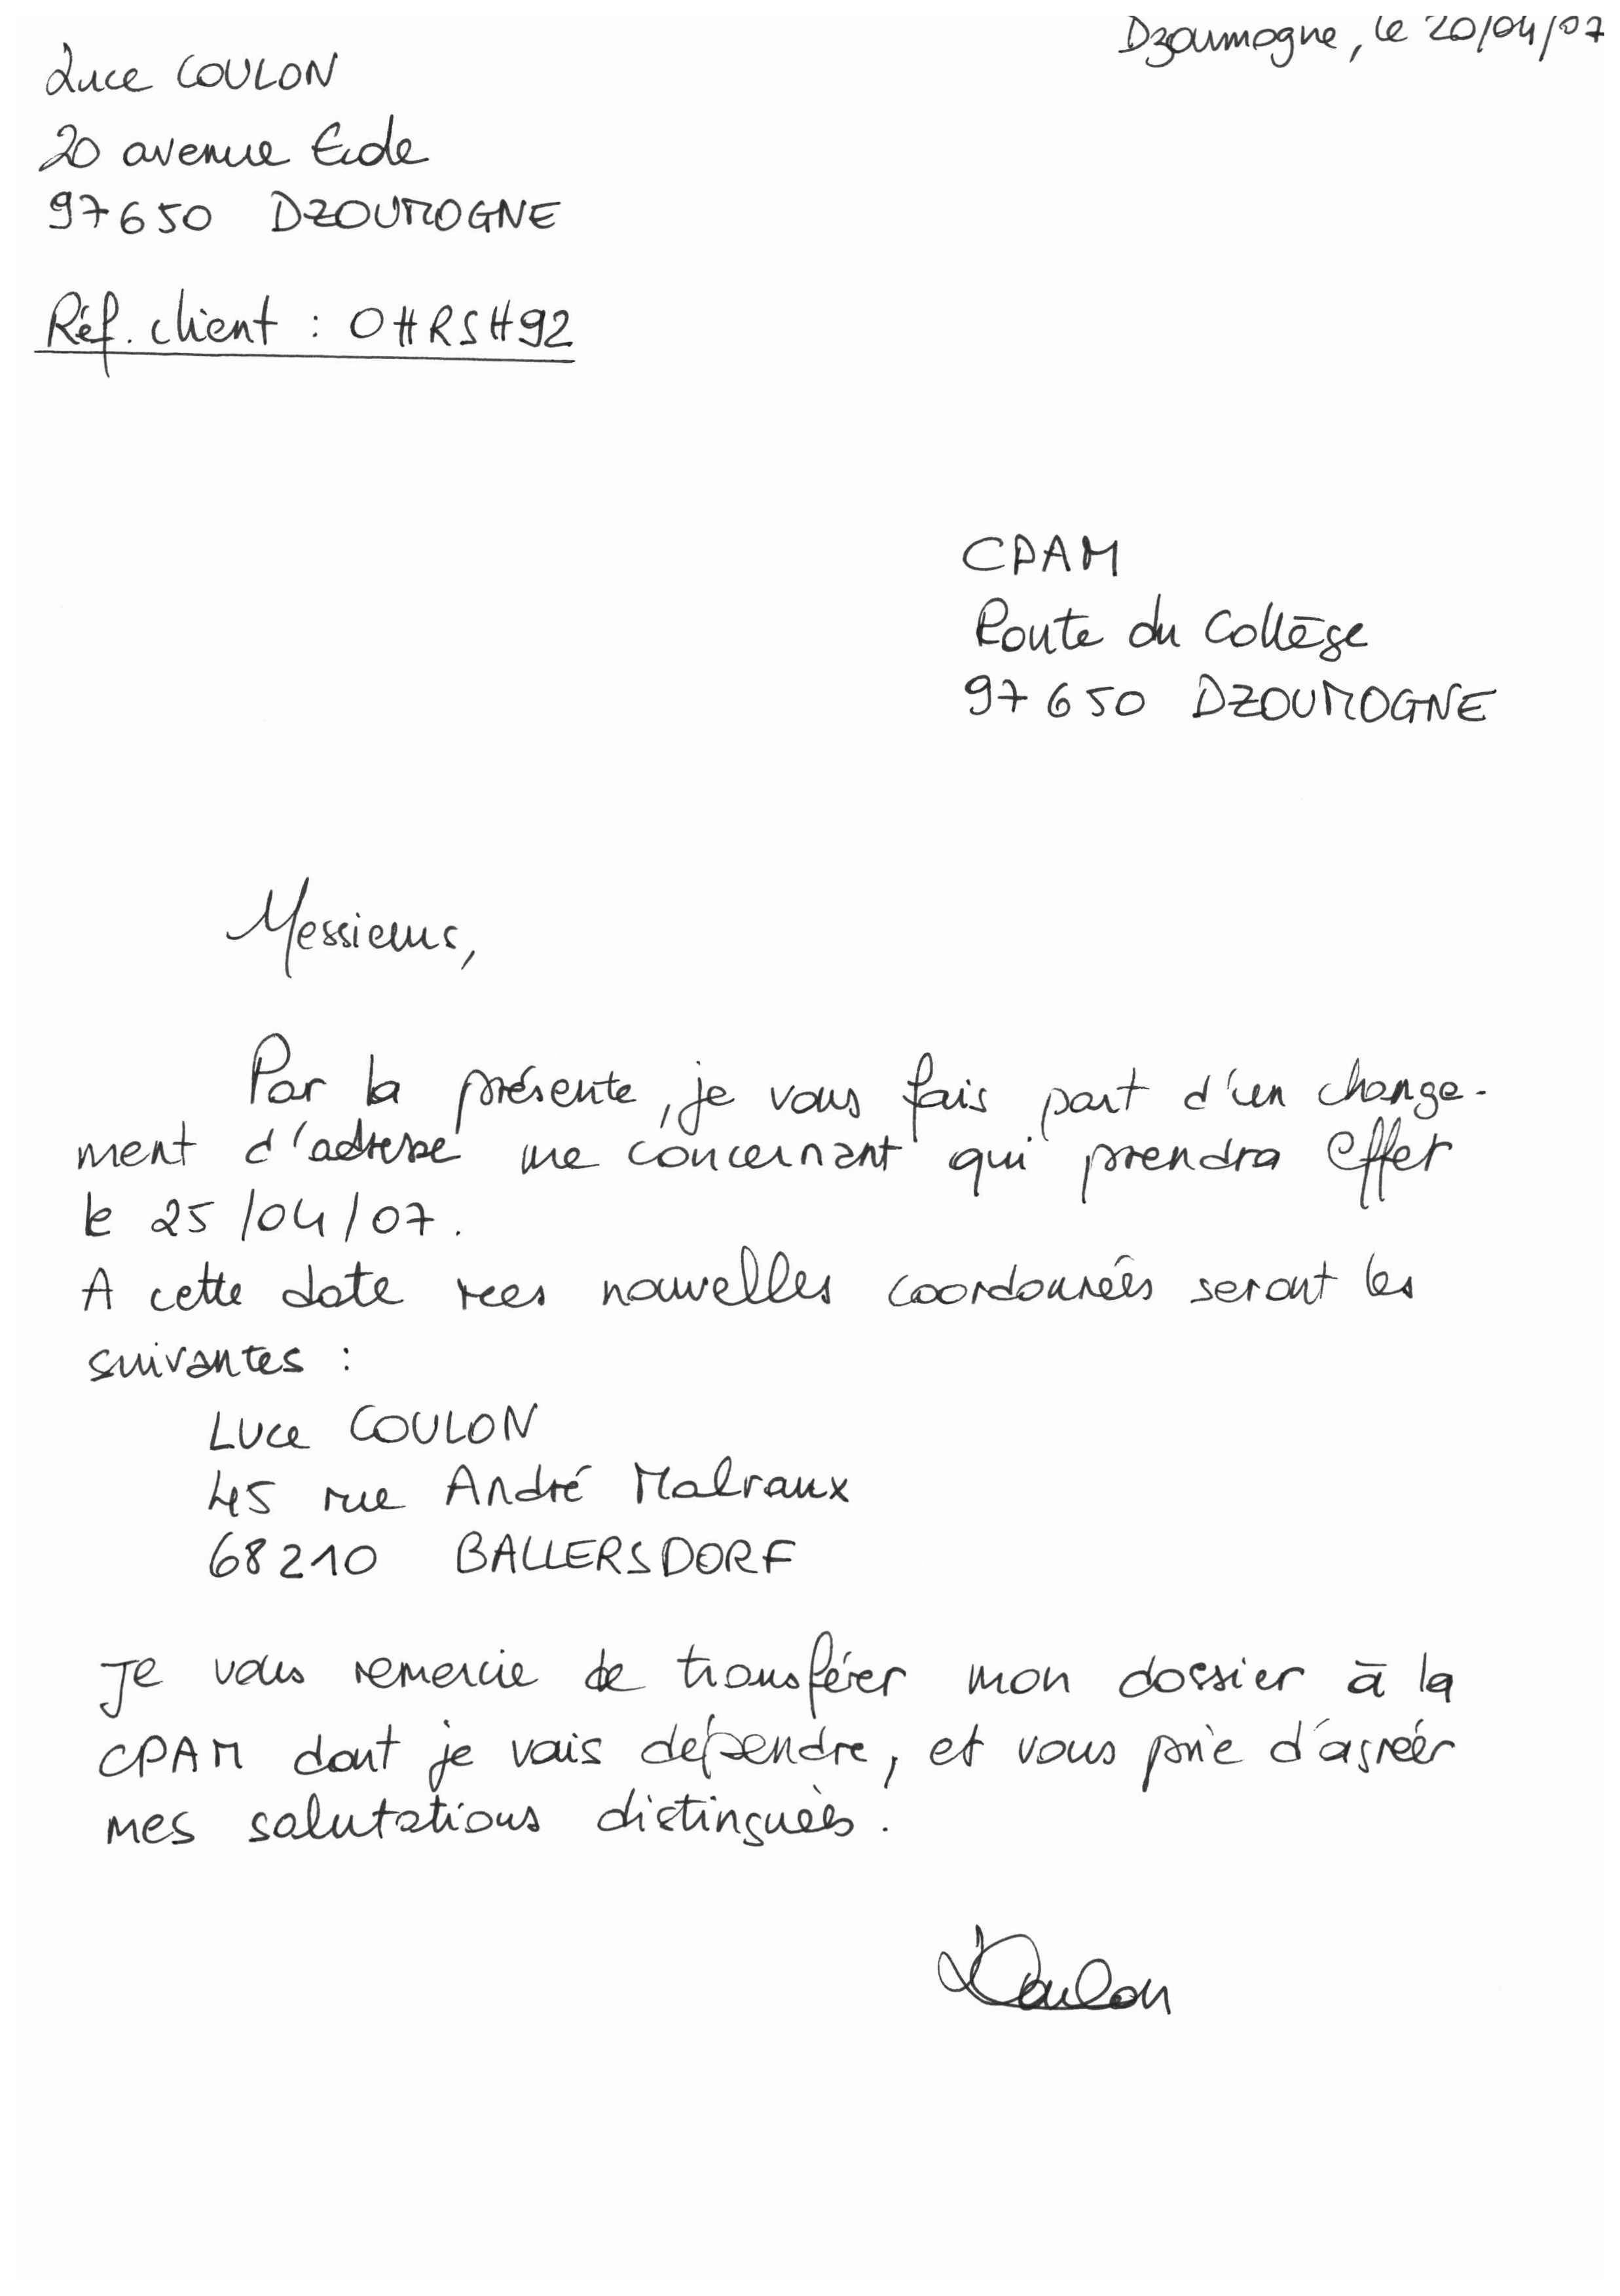 Dzoumogne, le 20/04/07
Luce COULON
20 avenue Ecole
97650 DZOUMOGNE
Réf. client : OHRSH92
CPAM
Route du Collège
97650 DZOUMOGNE
Messieurs,
Par la présente, je vous fais part d'un change-
ment d'adresse me concernant qui prendra effet
le 25/04/07.
A cette date mes nouvelles coordonnées seront les
suivantes :
Luce COULON
45 rue André Malraux
68210 BALLERSDORF
Je vous remercie de transférer mon dossier à la
CPAM dont je vais dépendre, et vous prie d'agréer
mes salutations distinguées.
LCoulon